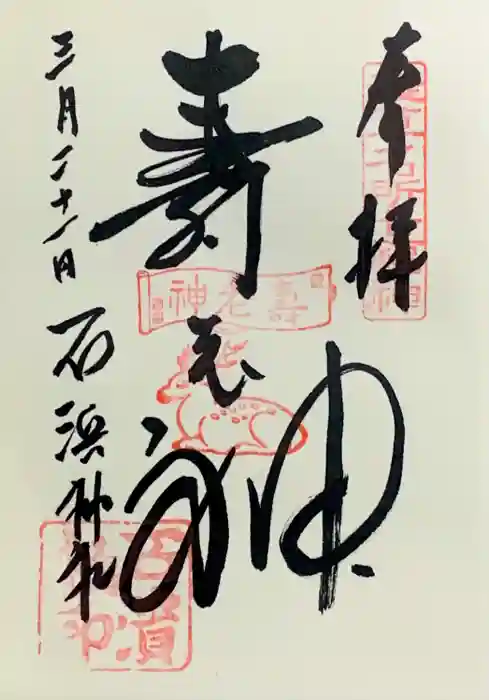 奉拝
寿老神
壽老神
三月二十一日 石浜神社